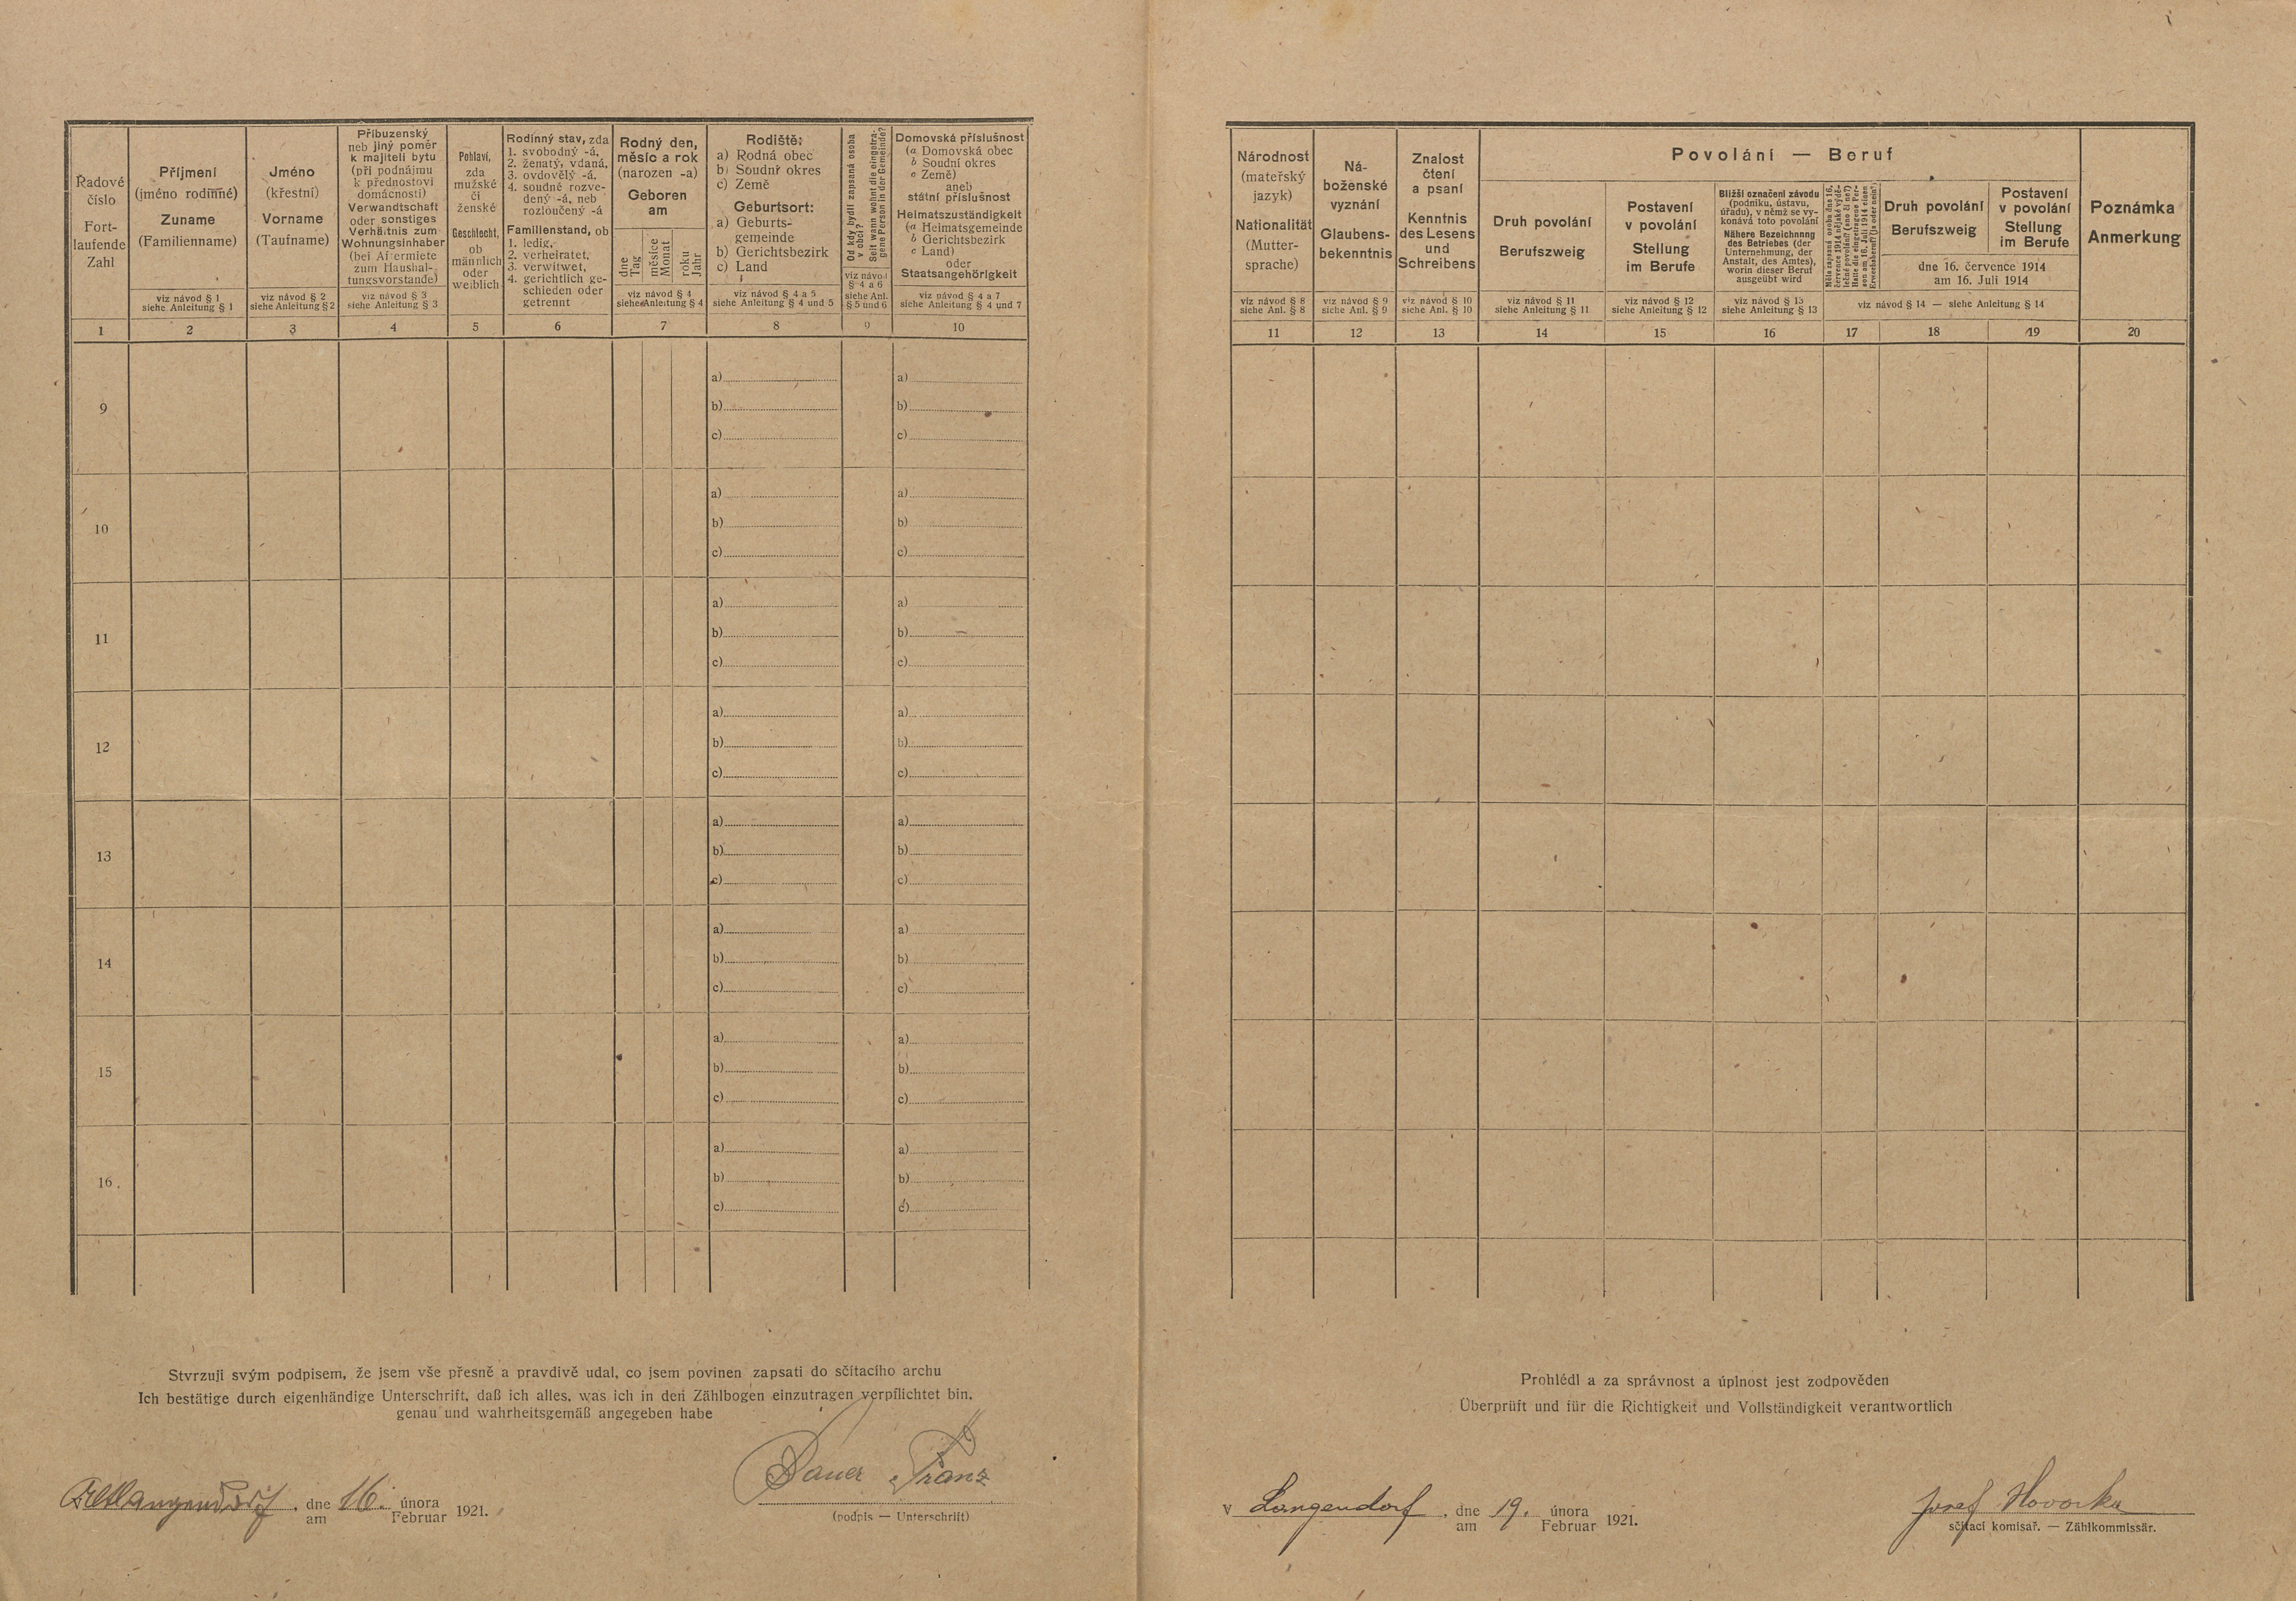 Řadové
číslo
Fort-
laufende
Zahl
1
Příjmení
(jméno rodinné)
Zuname
(Familienname)
viz návod § 1
siehe Anleitung § 1
2
Jméno
(křestní)
Vorname
(Taufname)
viz návod § 2
siehe Anleitung § 2
3
Příbuzenský
neb jiný poměr
k majiteli bytu
(při podnájmu
k přednostovi
domácnosti)
Verwandtschaft
oder sonstiges
Verhältnis zum
Wohnungsinhaber
(bei Aftermiete
zum Haushal-
tungsvorstande)
viz návod § 3
siehe Anleitung § 3
4
Pohlaví,
zda
mužské
či
ženské
Geschlecht,
ob
männlich
oder
weiblich
5
Rodinný stav, zda
1. svobodný -á,
2. ženatý, vdaná,
3. ovdovělý -á,
4. soudně rozve-
dený -á, neb
rozloučený -á
Familienstand, ob
1. ledig,
2. verheiratet,
3. verwitwet,
4. gerichtlich ge-
schieden oder
getrennt
6
Rodný den,
měsíc a rok
(narozen -a)
Geboren
am
dne
Tag
měsíce
Monat
roku
Jahr
viz návod § 4
siehe Anleitung § 4
7
Rodiště:
a) Rodná obec
b) Soudní okres
c) Země
Geburtsort:
a) Geburts-
gemeinde
b) Gerichtsbezirk
c) Land
viz návod § 4 a 5
siehe Anleitung § 4 und 5
8
Od kdy bydlí zapsaná osoba
v obci?
Seit wann wohnt die eingetra-
gene Person in der Gemeinde?
viz návod
§ 4 a 6
siehe Anl.
§ 5 und 6
9
Domovská příslušnost
(a Domovská obec
b Soudní okres
c Země)
aneb
státní příslušnost
Heimatszuständigkeit
(a Heimatsgemeinde
b Gerichtsbezirk
c Land)
oder
Staatsangehörigkeit
viz návod § 4 a 7
siehe Anleitung § 4 und 7
10
9
a) a)
b) b)
c) c)
10
a) a)
b) b)
c) c)
11
a) a)
b) b)
c) c)
12
a) a)
b) b)
c) c)
13
a) a)
b) b)
c) c)
14
a) a)
b) b)
c) c)
15
a) a)
b) b)
c) c)
16.
a) a)
b) b)
c) c)
Stvrzuji svým podpisem, že jsem vše přesně a pravdivě udal, co jsem povinen zapsati do sčítacího archu
Ich bestätige durch eigenhändige Unterschrift, daß ich alles, was ich in den Zählbogen einzutragen verpflichtet bin,
genau und wahrheitsgemäß angegeben habe
Altlangendorf, dne 16. února 1921.
am Februar
Bauer Franz
(podpis — Unterschrift)
Národnost
(mateřský
jazyk)
Nationalität
(Mutter-
sprache)
viz návod § 8
siehe Anl. § 8
11
Ná-
boženské
vyznání
Glaubens-
bekenntnis
viz návod § 9
siehe Anl. § 9
12
Znalost
čtení
a psaní
Kenntnis
des Lesens
und
Schreibens
viz návod § 10
siehe Anl. § 10
13
Povolání — Beruf
Druh povolání
Berufszweig
viz návod § 11
siehe Anleitung § 11
14
Postavení
v povolání
Stellung
im Berufe
viz návod § 12
siehe Anleitung § 12
15
Bližší označení závodu
(podniku, ústavu,
úřadu), v němž se vy-
konává toto povolání
Nähere Bezeichnung
des Betriebes (der
Unternehmung, der
Anstalt, des Amtes),
worin dieser Beruf
ausgeübt wird
viz návod § 13
siehe Anleitung § 13
16
Měla zapsaná osoba dne 16.
července 1914 nějaké výdě-
lečné povolání? (ano či ne?)
Hatte die eingetragene Per-
son am 16. Juli 1914 einen
Erwerbsberuf? (ja oder nein?)
17
Druh povolání
Berufszweig
18
Postavení
v povolání
Stellung
im Berufe
19
dne 16. července 1914
am 16. Juli 1914
viz návod § 14 — siehe Anleitung § 14
Poznámka
Anmerkung
20
Prohlédl a za správnost a úplnost jest zodpověden
Überprüft und für die Richtigkeit und Vollständigkeit verantwortlich
v Langendorf, dne 19. února 1921.
am Februar
Josef Hovorka
sčítací komisař. — Zählkommissär.